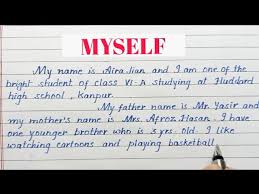 MYSELF
My name is Aira Jian and I am one of the
bright student of class VI-A studying at Huddard
high school, Kanpur.
My father name is Mr. Yasir and
my mother's name is Mrs. Afroz Hasan. I have
one younger brother who is 3 yrs. old. I like
watching cartoons and playing basketball